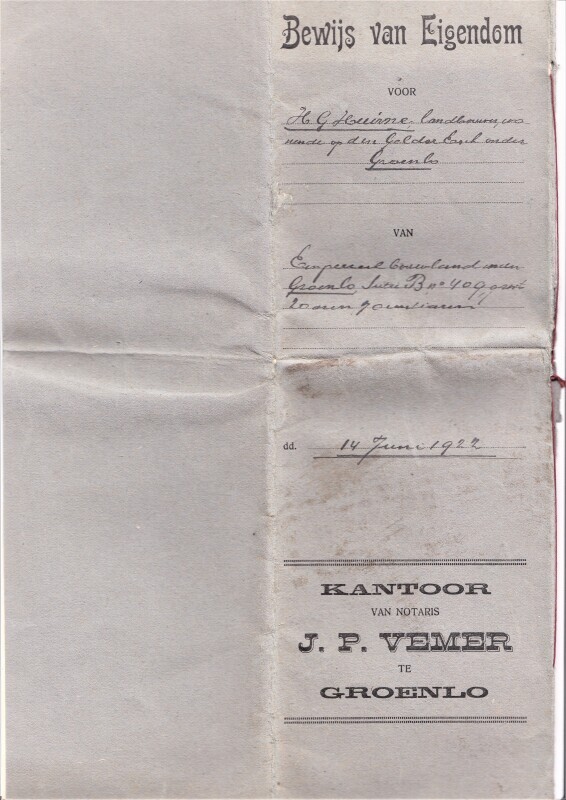 Bewijs van Eigendom
VOOR
H G Huirne, landbouwer, wo
nende op den Golder Esch onder
Groenlo
VAN
Een perceel bouwland onder
Groenlo Sectie B no 409 groot
20 aren 70 centiaren
dd. 14 Juni 1922
KANTOOR
VAN NOTARIS
J. P. VEMER
TE
GROENLO